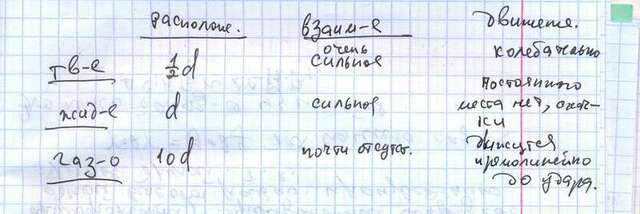 располож. взаим-е движение.
тв-е ½d очень сильное колебательно
жид-е d сильное Постоянного места нет, скач-
ки
газ-о 10d почти отсутст. движутся прямолинейно
до удара.